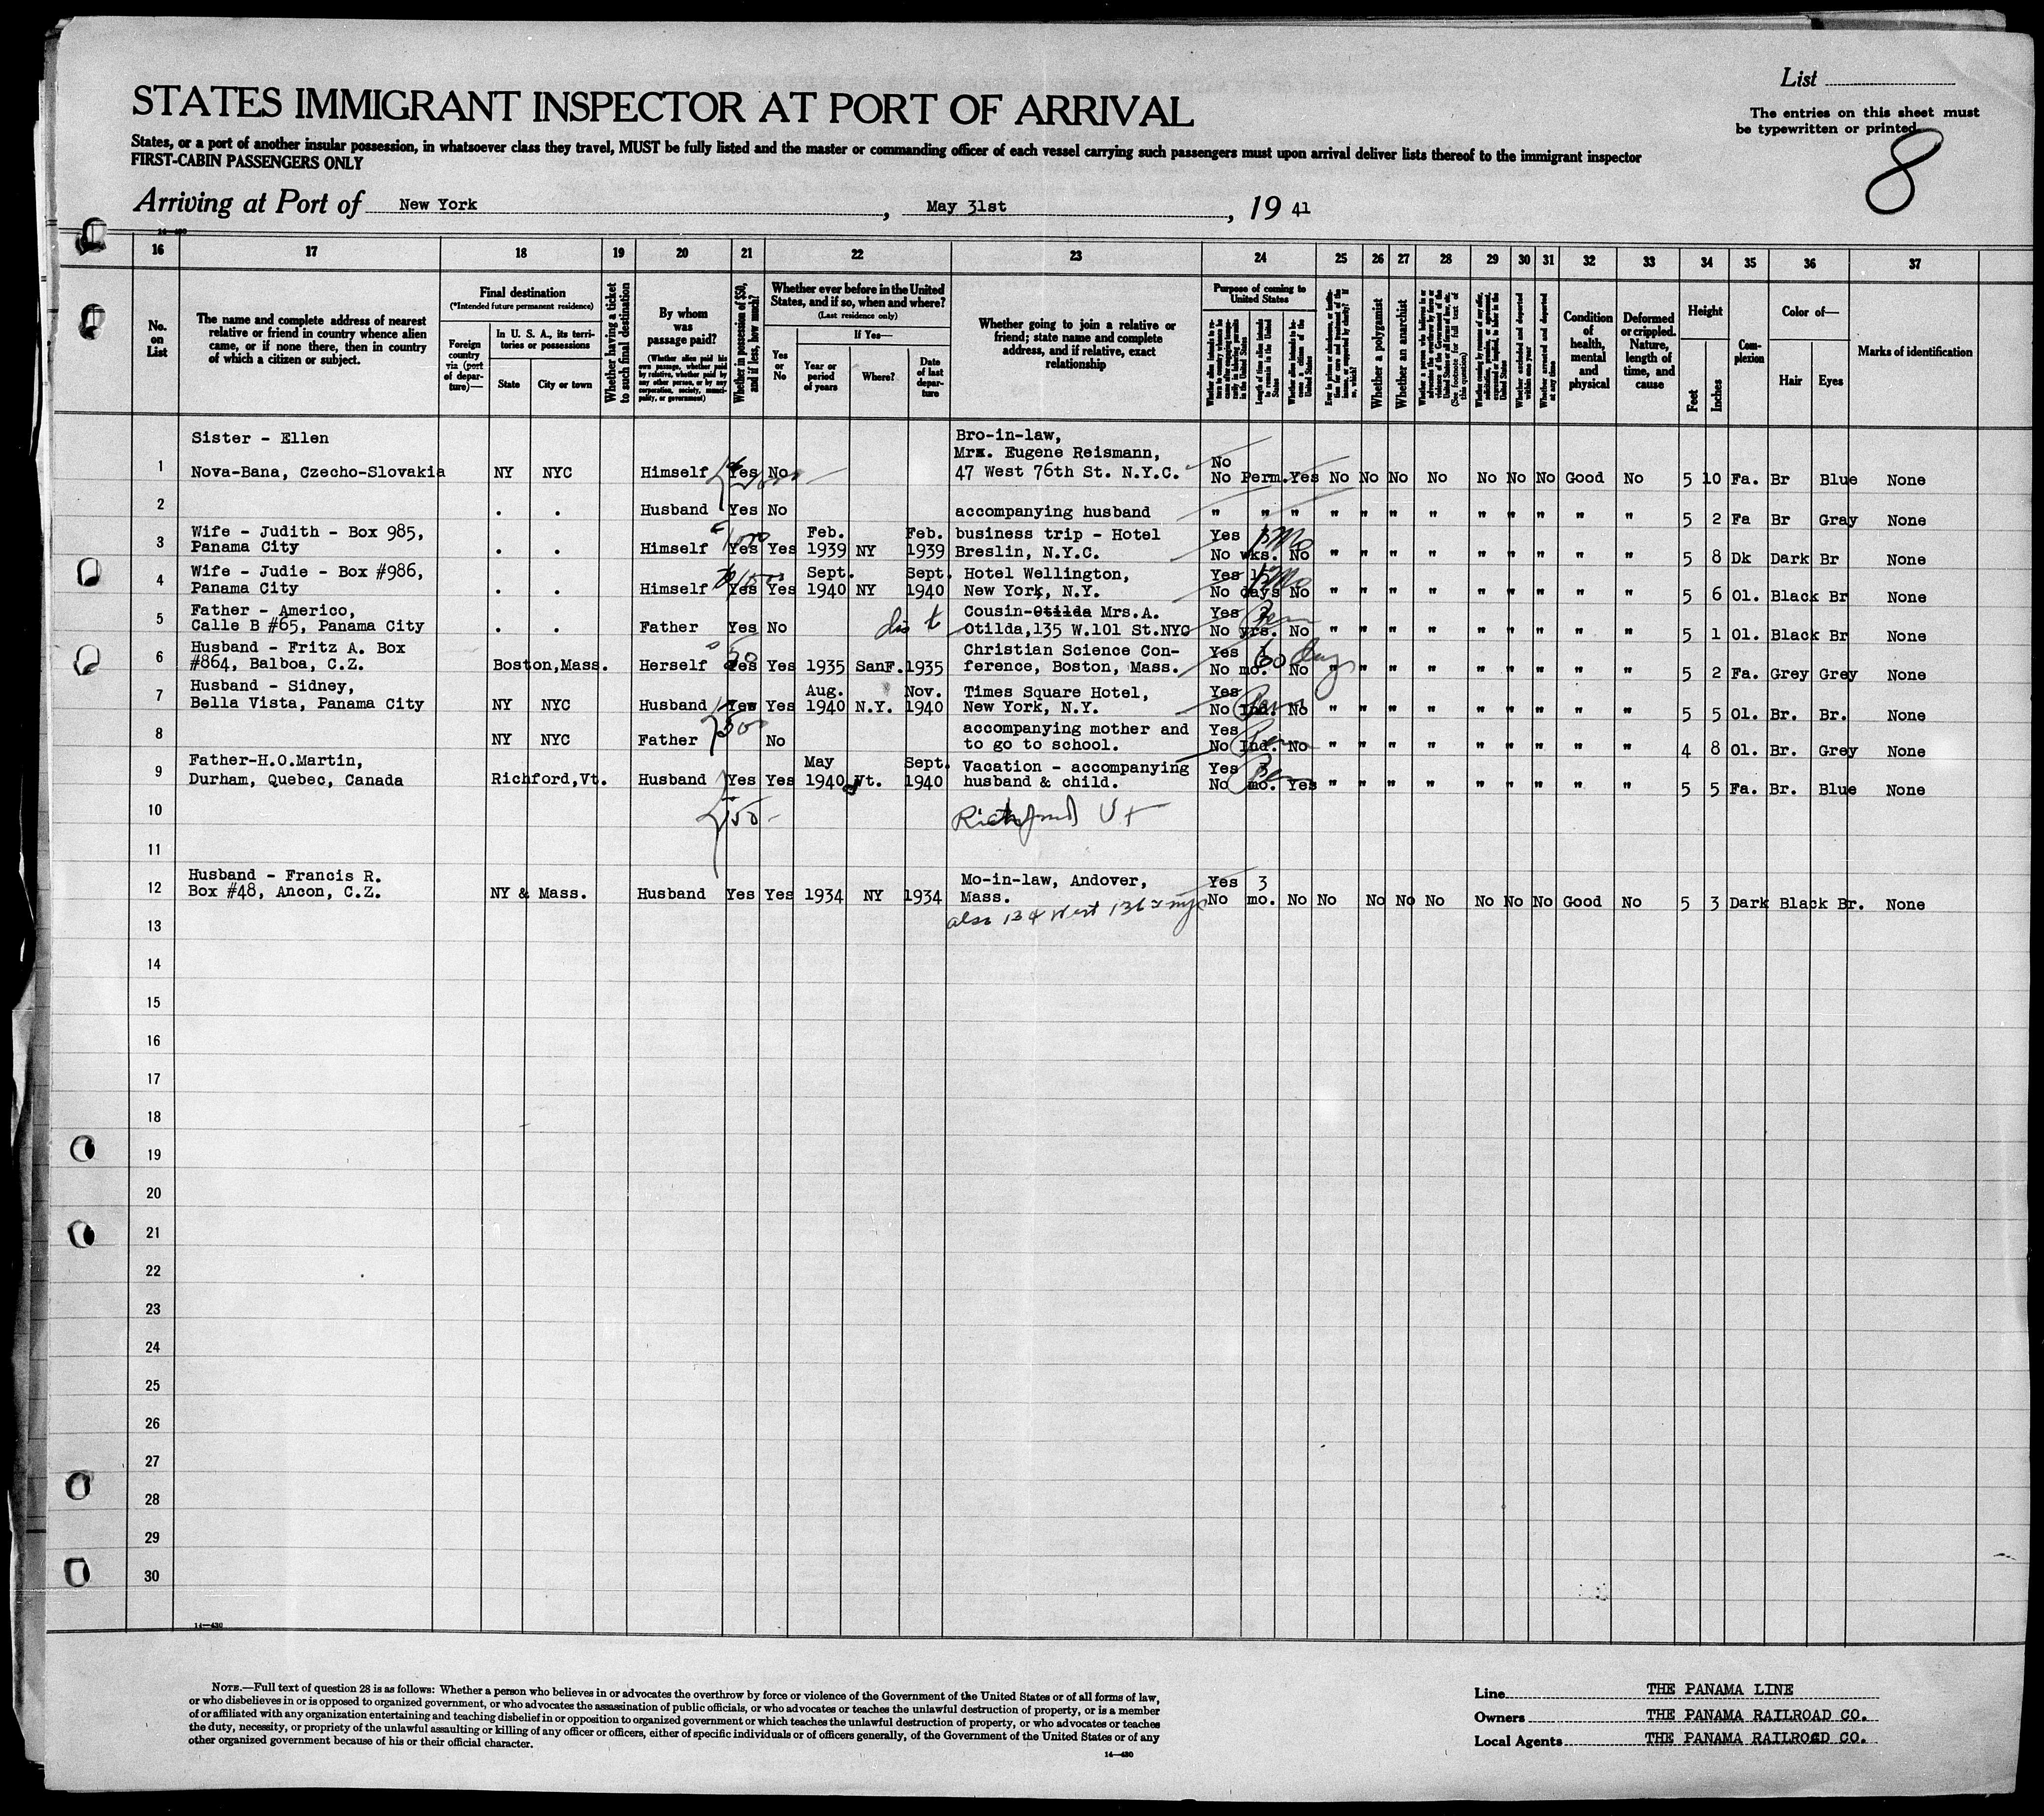 List
STATES IMMIGRANT INSPECTOR AT PORT OF ARRIVAL
The entries on this sheet must
be typewritten or printed
States, or a port of another insular possession, in whatsoever class they travel, MUST be fully listed and the master or commanding officer of each vessel carrying such passengers must upon arrival deliver lists thereof to the immigrant inspector
FIRST-CABIN PASSENGERS ONLY
8
Arriving at Port of New York, May 31st, 19 41
14-430
16 17 18 19 20 21 22 23 24 25 26 27 28 29 30 31 32 33 34 35 36 37
No. on List
The name and complete address of nearest
relative or friend in country whence alien
came, or if none there, then in country
of which a citizen or subject.
Final destination
(*Intended future permanent residence)
Foreign country via (port of departure)—
In U. S. A., its territories or possessions
State
City or town
Whether having a ticket to such final destination
By whom was passage paid?
(Whether alien paid his own passage, whether paid by relative, whether paid by any other person, or by any corporation, society, municipality, or government)
Whether in possession of $50, and if less, how much?
Whether ever before in the United
States, and if so, when and where?
(Last residence only)
Yes or No
If Yes—
Year or period of years
Where?
Date of last departure
Whether going to join a relative or
friend; state name and complete
address, and if relative, exact
relationship
Purpose of coming to
United States
Length of time alien intends to remain in the United States
Whether alien intends to become a citizen of the United States
Whether a polygamist
Whether an anarchist
Condition of health, mental and physical
Deformed or crippled. Nature, length of time, and cause
Height
Feet
Inches
Complexion
Color of—
Hair
Eyes
Marks of identification
1 Sister - Ellen Bro-in-law,
Mrx. Eugene Reismann,
Nova-Bana, Czecho-Slovakia NY NYC Himself Yes No 47 West 76th St. N.Y.C. No No Perm. Yes No No No No No No No Good No 5 10 Fa. Br Blue None
2 . . Husband Yes No accompanying husband " " " " " " " " " " " " 5 2 Fa Br Gray None
3 Wife - Judith - Box 985, Feb. Feb. business trip - Hotel Yes
Panama City . . Himself Yes Yes 1939 NY 1939 Breslin, N.Y.C. No wks. No " " " " " " " " " 5 8 Dk Dark Br None
4 Wife - Judie - Box #986, Sept. Sept. Hotel Wellington, Yes
Panama City . . Himself Yes Yes 1940 NY 1940 New York, N.Y. No days No " " " " " " " " " 5 6 Ol. Black Br None
5 Father - Americo, Cousin-Otilda Mrs. A. Yes
Calle B #65, Panama City . . Father Yes No Otilda, 135 W.101 St.NYC No yrs. No " " " " " " " " " 5 1 Ol. Black Br None
6 Husband - Fritz A. Box Christian Science Con- Yes
#864, Balboa, C.Z. Boston, Mass. Herself Yes 50 Yes 1935 SanF. 1935 ference, Boston, Mass. No mo. No 60 days " " " " " " " " " 5 2 Fa. Grey Grey None
7 Husband - Sidney, Aug. Nov. Times Square Hotel, Yes
Bella Vista, Panama City NY NYC Husband Yes Yes 1940 N.Y. 1940 New York, N.Y. No Ind. No " " " " " " " " " 5 5 Ol. Br. Br. None
8 accompanying mother and Yes
NY NYC Father 500 No to go to school. No Ind. No " " " " " " " " " 4 8 Ol. Br. Grey None
9 Father-H.O.Martin, May Sept. Vacation - accompanying Yes
Durham, Quebec, Canada Richford, Vt. Husband Yes Yes 1940 Vt. 1940 husband & child. No mo. Yes " " " " " " " " " 5 5 Fa. Br. Blue None
10 150- Richford Vt
11
12 Husband - Francis R. Mo-in-law, Andover, Yes 3
Box #48, Ancon, C.Z. NY & Mass. Husband Yes Yes 1934 NY 1934 Mass. No mo. No No No No No No No No Good No 5 3 Dark Black Br. None
also 134 West 136 st nyc
13
14
15
16
17
18
19
20
21
22
23
24
25
26
27
28
29
30
14-430
NOTE.—Full text of question 28 is as follows: Whether a person who believes in or advocates the overthrow by force or violence of the Government of the United States or of all forms of law,
or who disbelieves in or is opposed to organized government, or who advocates the assassination of public officials, or who advocates or teaches the unlawful destruction of property, or is a member
of or affiliated with any organization entertaining and teaching disbelief in or opposition to organized government or which teaches the unlawful destruction of property, or who advocates or teaches
the duty, necessity, or propriety of the unlawful assaulting or killing of any officer or officers, either of specific individuals or of officers generally, of the Government of the United States or of any
other organized government because of his or their official character.
14-430
Line THE PANAMA LINE
Owners THE PANAMA RAILROAD CO.
Local Agents THE PANAMA RAILROAD CO.